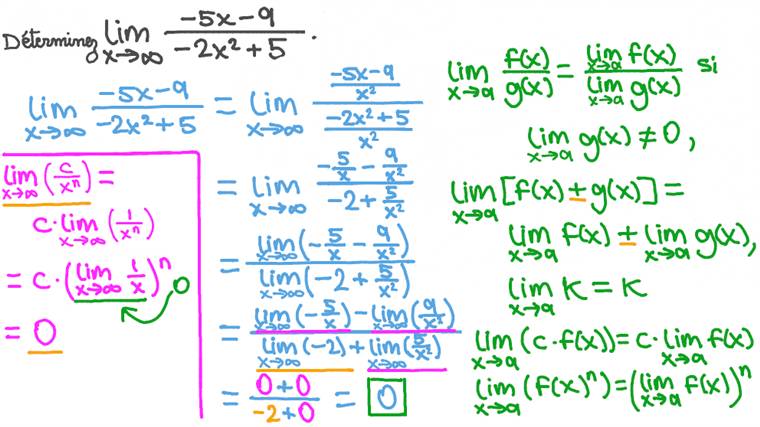 Déterminez lim x→∞ (-5x-9)/(-2x²+5).
lim x→∞ (-5x-9)/(-2x²+5) = lim x→∞ ((-5x-9)/x²)/((-2x²+5)/x²)
= lim x→∞ (-5/x - 9/x²)/(-2 + 5/x²)
= lim x→∞ (-5/x - 9/x²) / lim x→∞ (-2 + 5/x²)
= (lim x→∞ (-5/x) - lim x→∞ (9/x²)) / (lim x→∞ (-2) + lim x→∞ (5/x²))
= (0+0)/(-2+0) = 0
lim x→∞ (c/xⁿ) =
c· lim x→∞ (1/xⁿ)
= c·(lim x→∞ 1/x)ⁿ 0
= 0
lim x→a f(x)/g(x) = lim x→a f(x) / lim x→a g(x) si
lim x→a g(x) ≠ 0,
lim x→a [f(x) ± g(x)] =
lim x→a f(x) ± lim x→a g(x),
lim x→a K = K
lim x→a (c·f(x)) = c· lim x→a f(x)
lim x→a (f(x)ⁿ) = (lim x→a f(x))ⁿ